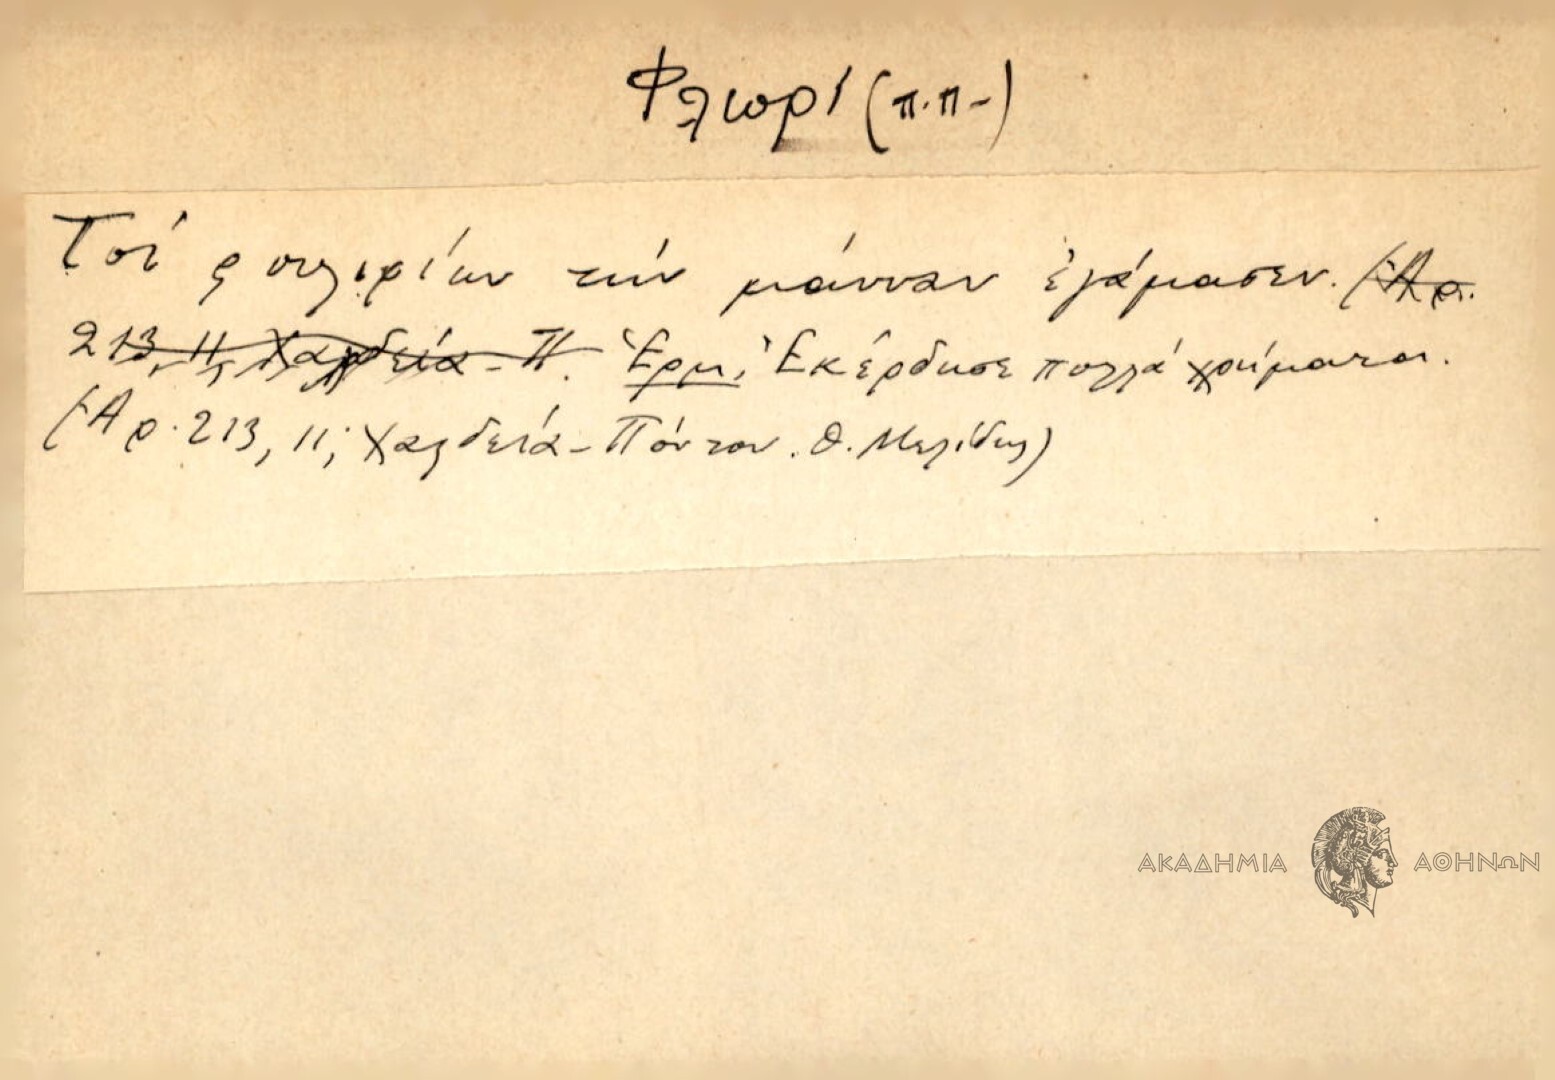 Φλιωρί (π.π-)
Τσί φουλιρίων τήν μάνναν ἐγάμασεν. (Ἀρ.
213, 11, Χαλδεία-Π. Ἑρμ. Ἐκέρδησε πολλά χρήματα.
(Ἀρ. 213, 11, Χαλδεία-Πόντου. Θ. Μελίδης)
ΑΚΑΔΗΜΙΑ ΑΘΗΝΩΝ